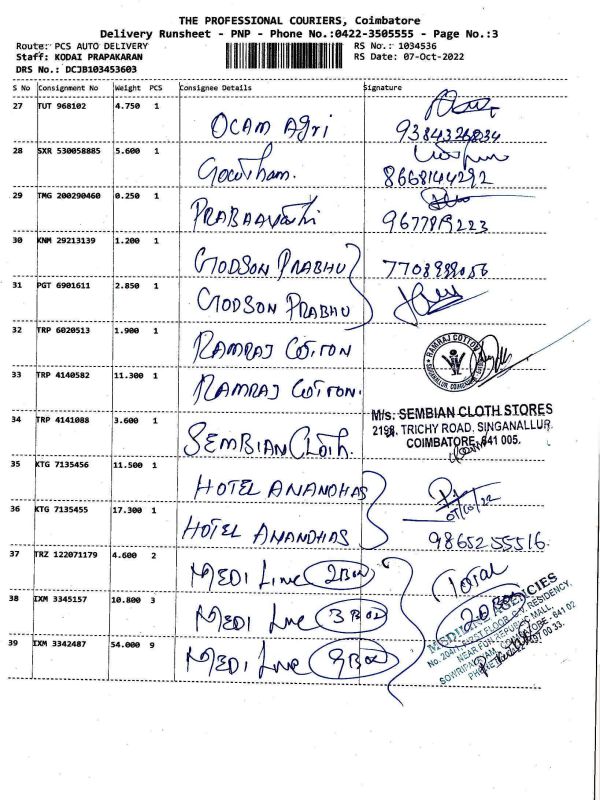 THE PROFESSIONAL COURIERS, Coimbatore
Delivery Runsheet - PNP - Phone No.:0422-3505555 - Page No.:3
Route: PCS AUTO DELIVERY RS No.: 1034536
Staff: KODAI PRAPAKARAN RS Date: 07-Oct-2022
DRS No.: DCJB103453603
S No Consignment No Weight PCS Consignee Details Signature
27 TUT 968102 4.750 1
OCAM Agri 9384326834
28 SXR 530058885 5.600 1
Gowtham. 8668144292
29 TMG 200290460 0.250 1
PRABAAvathi 9677819223
30 KNM 29213139 1.200 1
GODSON PRABHU 7708989056
31 PGT 6901611 2.850 1
GODSON PRABHU
32 TRP 6020513 1.900 1
RAMRAJ COTTON
RAMRAJ COTTON
33 TRP 4140582 11.300 1
RAMRAJ COTTON.
34 TRP 4141088 3.600 1
M/s. SEMBIAN CLOTH STORES
2198, TRICHY ROAD, SINGANALLUR,
COIMBATORE, 641 005.
SEMBIAN Cloth.
35 KTG 7135456 11.500 1
HOTEL ANANDHAS
07/10/22
36 KTG 7135455 17.300 1
HOTEL ANANDHAS 9865255516
37 TRZ 122071179 4.600 2
MEDI Line 2Box Total
38 IXM 3345157 10.800 3
MEDI Line 3Box
AGENCIES
39 IXM 3342487 54.000 9
MEDI Line 9Box